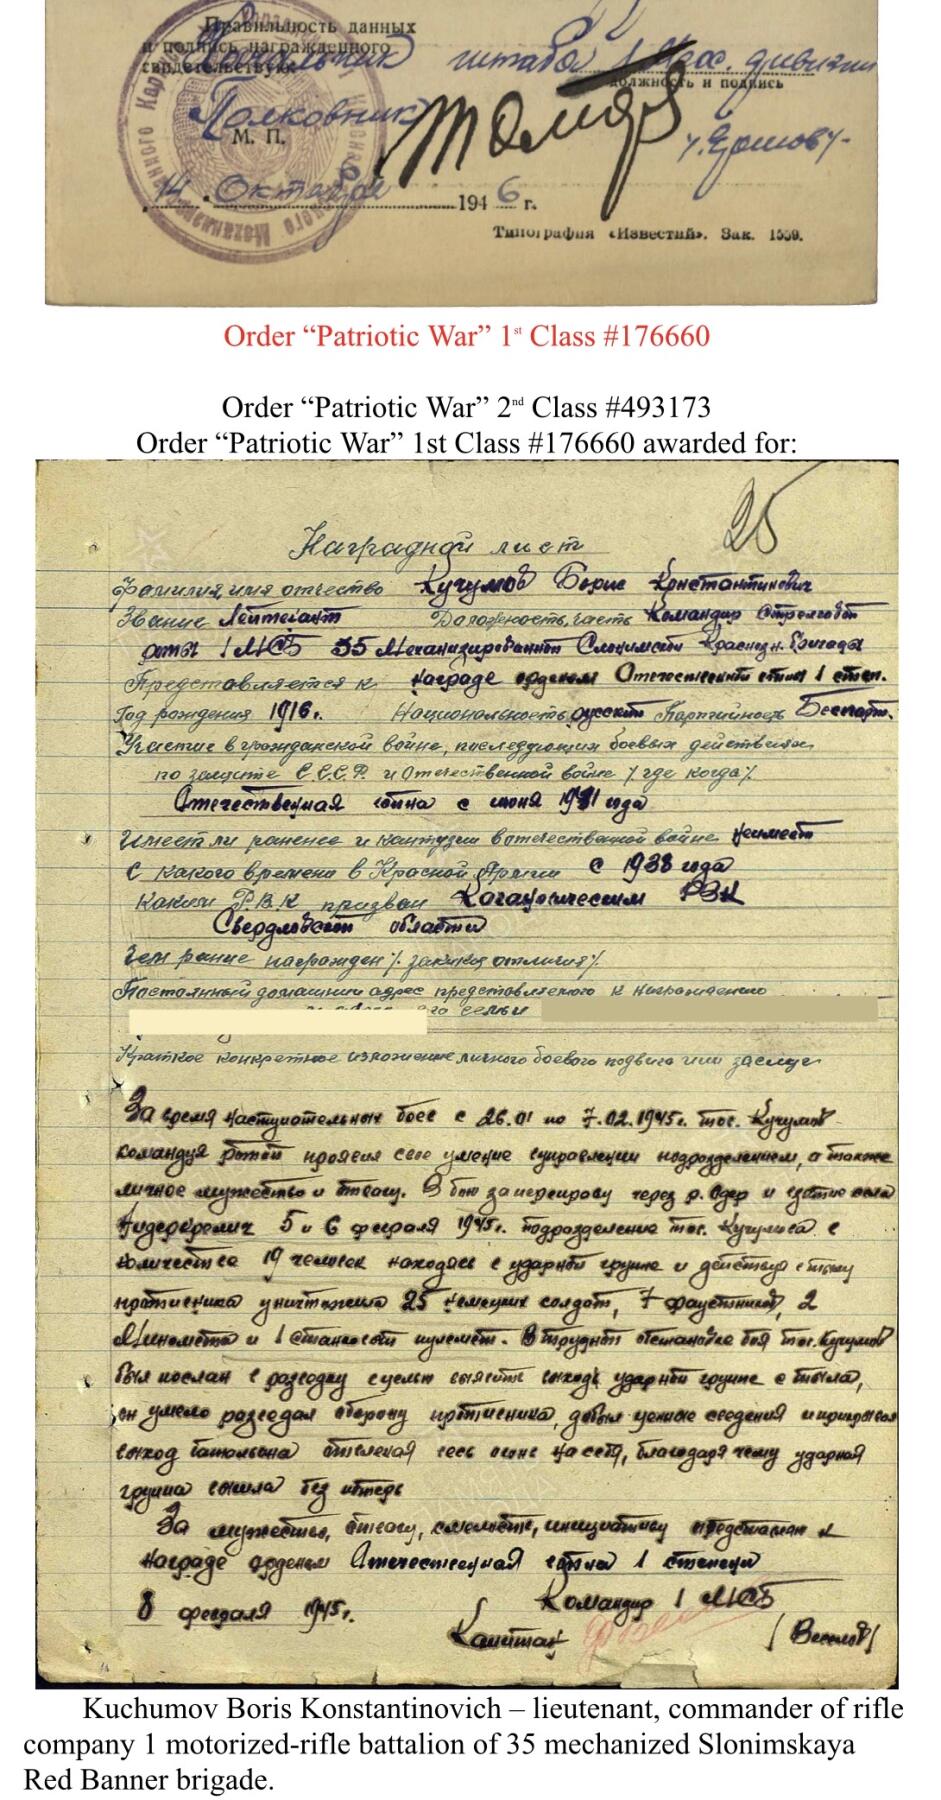 Правильность данных
и подпись награжденного
свидетельствую: Начальник штаба 1 дивизии
должность и подпись
Полковник
М. П.
14 Октября 1946 г.
Типография «Известий». Зак. 1559.
Order “Patriotic War” 1st Class #176660
Order “Patriotic War” 2nd Class #493173
Order “Patriotic War” 1st Class #176660 awarded for:
25
Наградной лист
Фамилия имя отчество Кучумов Борис Константинович
Звание Лейтенант Должность, часть Командир Стрелковой
роты 1 МСБ 35 Механизированной Слонимской Краснозн. бригады
Представляется к награде орденом Отечественной войны 1 степ.
Год рождения 1916г. Национальность русский Партийность Беспарт.
Участие в гражданской войне, последующих боевых действиях
по защите С.С.С.Р. и Отечественной войне /где когда/
Отечественная война с июня 1941 года
Имеет ли ранение и контузии в отечественной войне неимеет
С какого времени в Красной Армии с 1938 года
Каким Р.В.К призван Кагановическим РВК
Свердловской области
Чем ранее награжден /за какие отличия/
Постоянный домашний адрес представляемого к награждению
его семьи
Краткое конкретное изложение личного боевого подвига или заслуг
За время наступательных боев с 26.01 по 7.02.1945г. тов. Кучумов
командуя ротой проявил свое умение в управлении подразделением, а также
личное мужество и отвагу. В бою за переправу через р. Одер и взятие села
5 и 6 февраля 1945г. подразделение тов. Кучумова в
количестве 19 человек находясь в ударной группе и действуя с тылу
противника уничтожила 25 немецких солдат, 7 фаустников, 2
Миномета и 1 станковый пулемет. В трудной обстановке боя тов. Кучумов
был послан в разведку с целью выяснить выход ударной группе с тыла,
он умело разведал оборону противника, добыл ценные сведения и прикрывал
выход батальона отвлекая весь огонь на себя, благодаря чему ударная
группа вышла без потерь
За мужество, отвагу, смелость, инициативу представлен к
награде орденом Отечественная война 1 степени
8 февраля 1945г. Командир 1 МСБ
Капитан /Веселов/
Kuchumov Boris Konstantinovich – lieutenant, commander of rifle
company 1 motorized-rifle battalion of 35 mechanized Slonimskaya
Red Banner brigade.